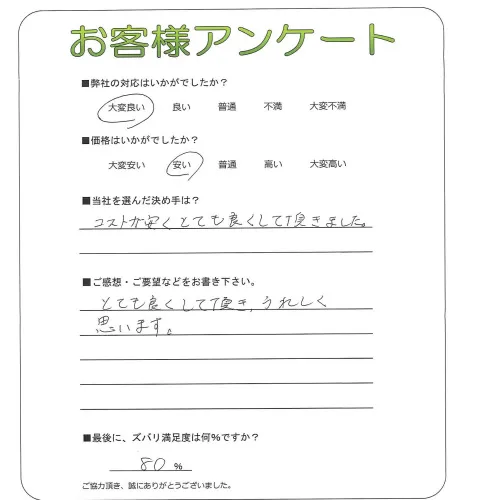 お客様アンケート
■弊社の対応はいかがでしたか？
大変良い 良い 普通 不満 大変不満
■価格はいかがでしたか？
大変安い 安い 普通 高い 大変高い
■当社を選んだ決め手は？
コストが安くとても良くして頂きました。
■ご感想・ご要望などをお書き下さい。
とても良くして頂き、うれしく
思います。
■最後に、ズバリ満足度は何%ですか？
80 %
ご協力頂き、誠にありがとうございました。